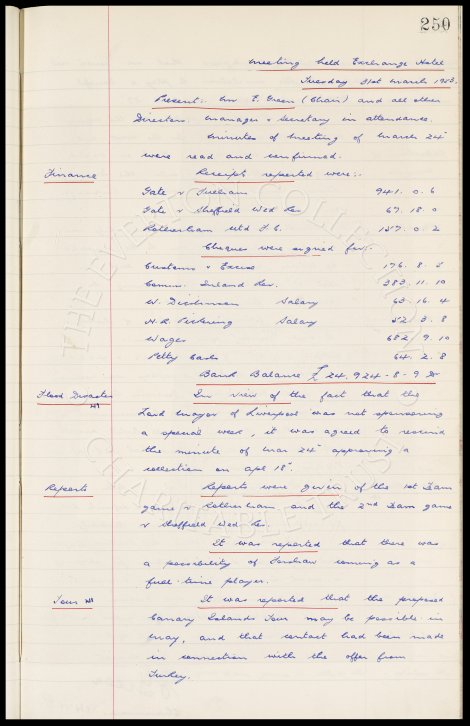 250
Meeting held Exchange Hotel
Tuesday 31st March 1953.
Present: Mr E. Green (Chair) and all other
Directors. Manager & Secretary in attendance.
Minutes of Meeting of March 24th
were read and confirmed.
Finance
Receipts reported were:-
Gate v Fulham 941. 0. 6
Gate v Sheffield Wed Res 67. 18. 0
Rotherham Utd F.C. 157. 0. 2
Cheques were signed for:-
Customs & Excise 176. 8. 5
Comm. Inland Rev. 383. 11. 10
W. Dickinson Salary 63. 16. 4
H.R. Pickering Salary 52. 3. 8
Wages 682. 9. 10
Petty Cash 64. 2. 8
Bank Balance £24,924-8-9
Flood Disaster
In view of the fact that the
Lord Mayor of Liverpool was not sponsoring
a special week, it was agreed to rescind
the minute of Mar 24th approving a
collection on Apl 18th.
Reports
Reports were given of the 1st Team
game v Rotherham and the 2nd Team game
v Sheffield Wed Res.
It was reported that there was
a possibility of Farshaw coming as a
full-time player.
Tour
It was reported that the proposed
Canary Islands Tour may be possible in
May, and that contact had been made
in connection with the offer from
Turkey.
THE EVERTON COLLECTION
CHARITABLE TRUST